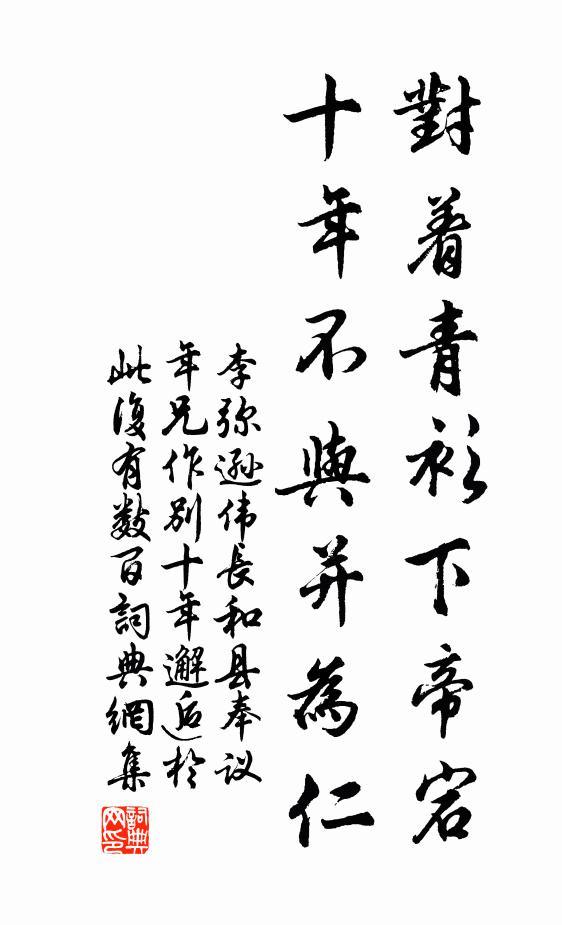 對着青衫下帝宕
十年不與并為仁
李弥遜伟長和县奉议
年兄作别十年邂逅於
此復有数百詞典網集
詞典
网印